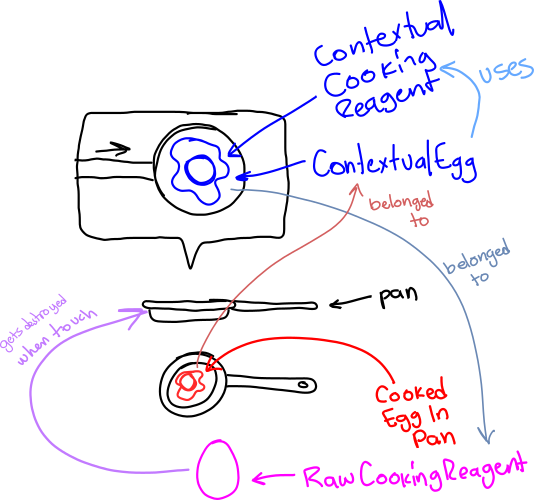 Contextual
Cooking
Reagent
uses
ContextualEgg
belonged
to
belonged
to
pan
gets destroyed
when touch
Cooked
Egg In
Pan
RawCookingReagent